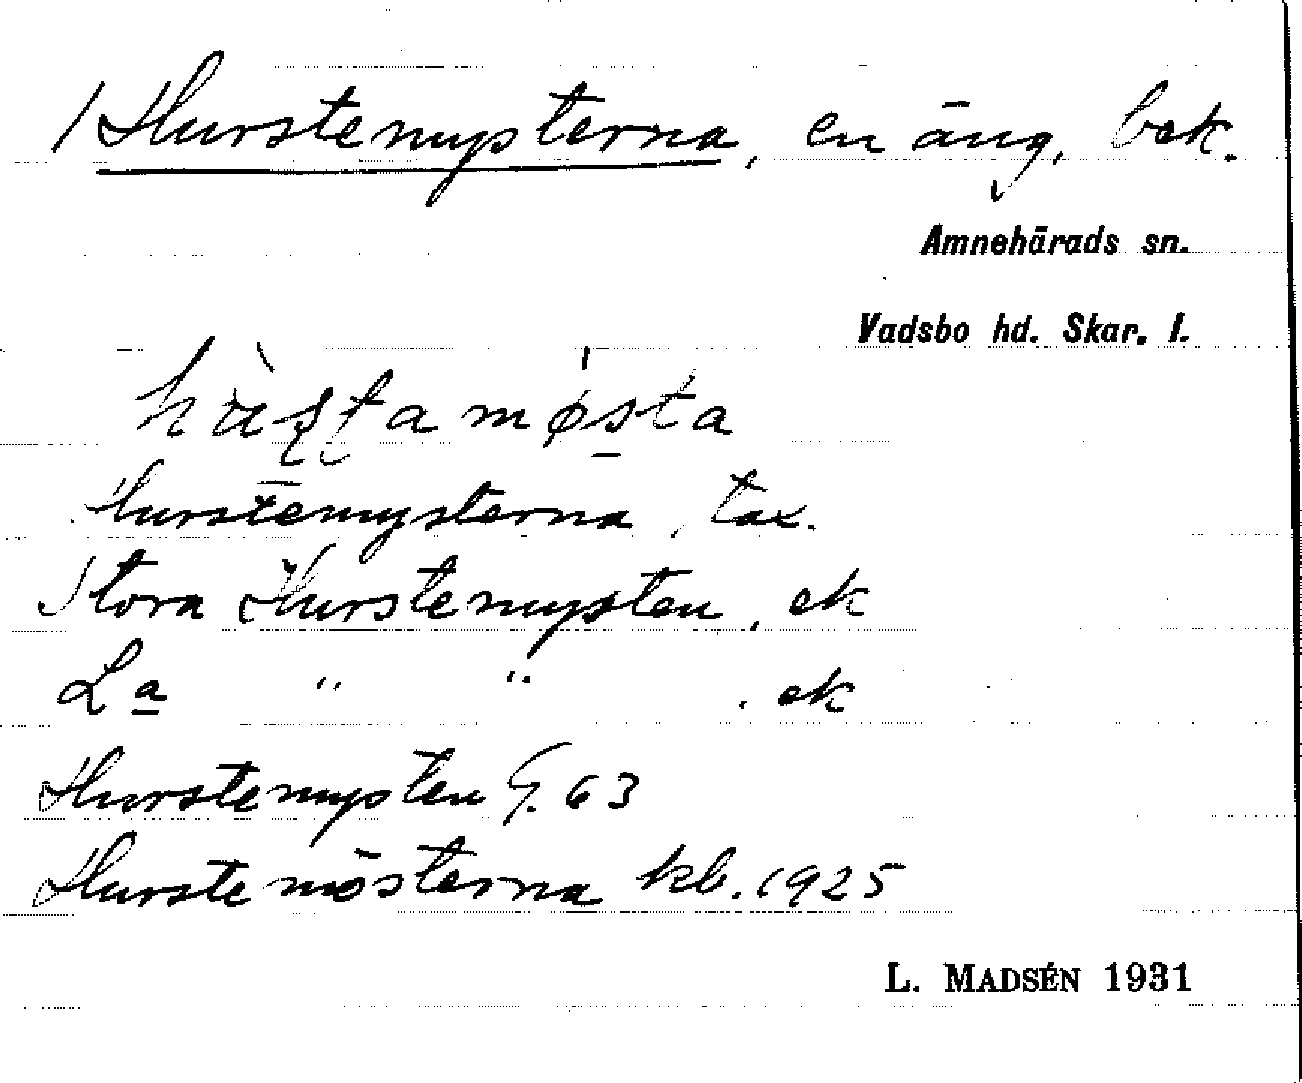 1 Hurstemysterna, en äng, bek.
Amnehärads sn.
Vadsbo hd. Skar. l.
Hurstemysterna, tax.
Stora Hurstemysten, ek
La " " , ek
Hurstemysten G. 63
Hurstemösterna kb. 1925
L. MADSÉN 1931